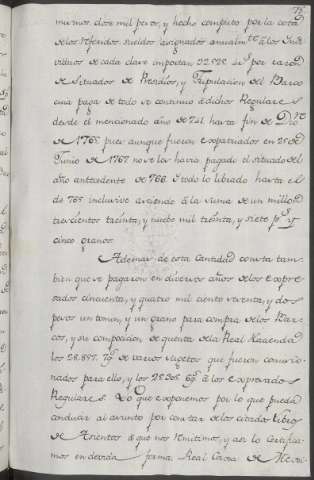 mismos doze mil pesos, y hecho computo por la cota
de los referidos sueldos asignados annualm.te à los Indi
viduos de cada clase importan 32828 p.s por razon
de Situados de Presidios, y Tripulacion del Barco
cuia paga de todo se continuo à dichos Regulares
desde el mencionado año de 721. hasta fin de Dic.re
de 1765 pues aunque fueron expatriados en 25 de
Junio de 1767 no se les havia pagado el situado del
año antecedente de 766. Y todo lo librado hasta el
de 765 inclusive asciende à la suma de un millon
trescientos treinta, y nuebe mil treinta, y siete p.s y
cinco granos.
Ademas de esta cantidad consta tam
bien que se pagaron en diversos años de los expre
sados cinquenta, y quatro mil ciento noventa, y dos
pesos un tomin, y un grano para compra de los Bar
cos, y su composicion de quenta de la Real Hazienda
los de varios sugetos que fueron comisio
nados para ello, y los à los expresados
Regulares. Lo que exponemos por lo que pueda
conducir al asunto por constar de los citados Libros
de Asientos à que nos remitimos, y asi lo Certifica
mos en devida forma, Real Caxa de Mexi-